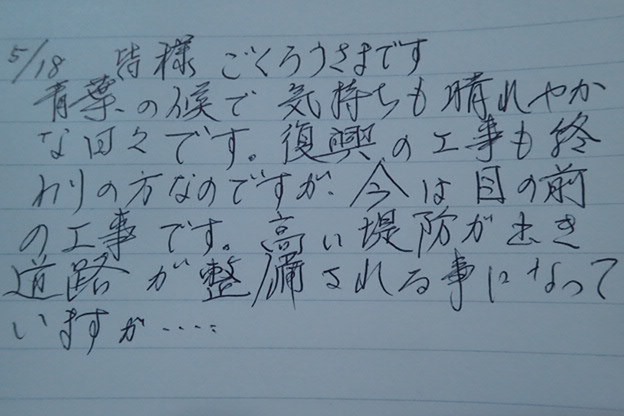 5/18 皆様 ごくろうさまです
青葉の候で 気持ちも晴れやか
な日々です。復興の工事も終
わりの方なのですが、今は目の前
の工事です。高い堤防が出き
道路が整備される事になって
いますが‥‥